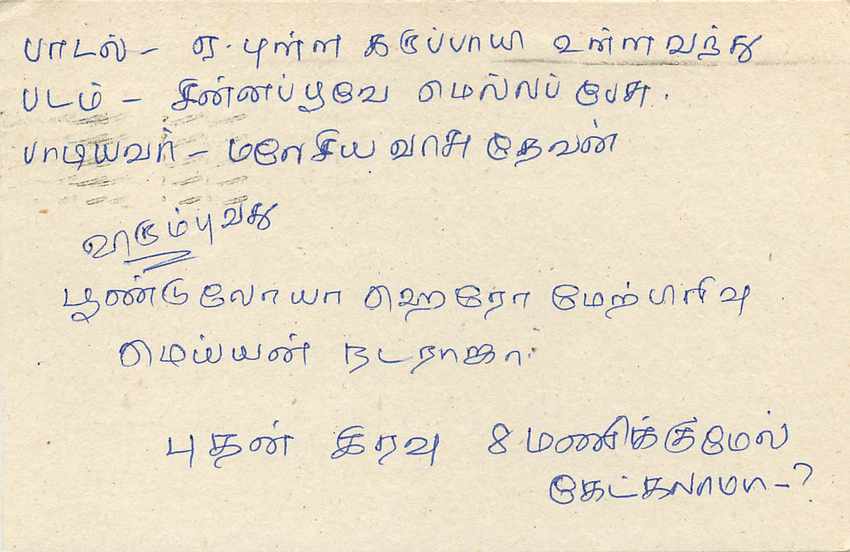 பாடல் - ஏ. புள்ள கருப்பாயி உள்ள வந்து
படம் - சின்னப்பூவே மெல்லப் பேசு.
பாடியவர் - மலேசிய வாசு தேவன்
விரும்புவது
பூண்டுலோயா ஹெரோ மேற்பிரிவு
மெய்யன் நடராஜா.
புதன் இரவு 8 மணிக்குமேல்
கேட்கலாமா -?